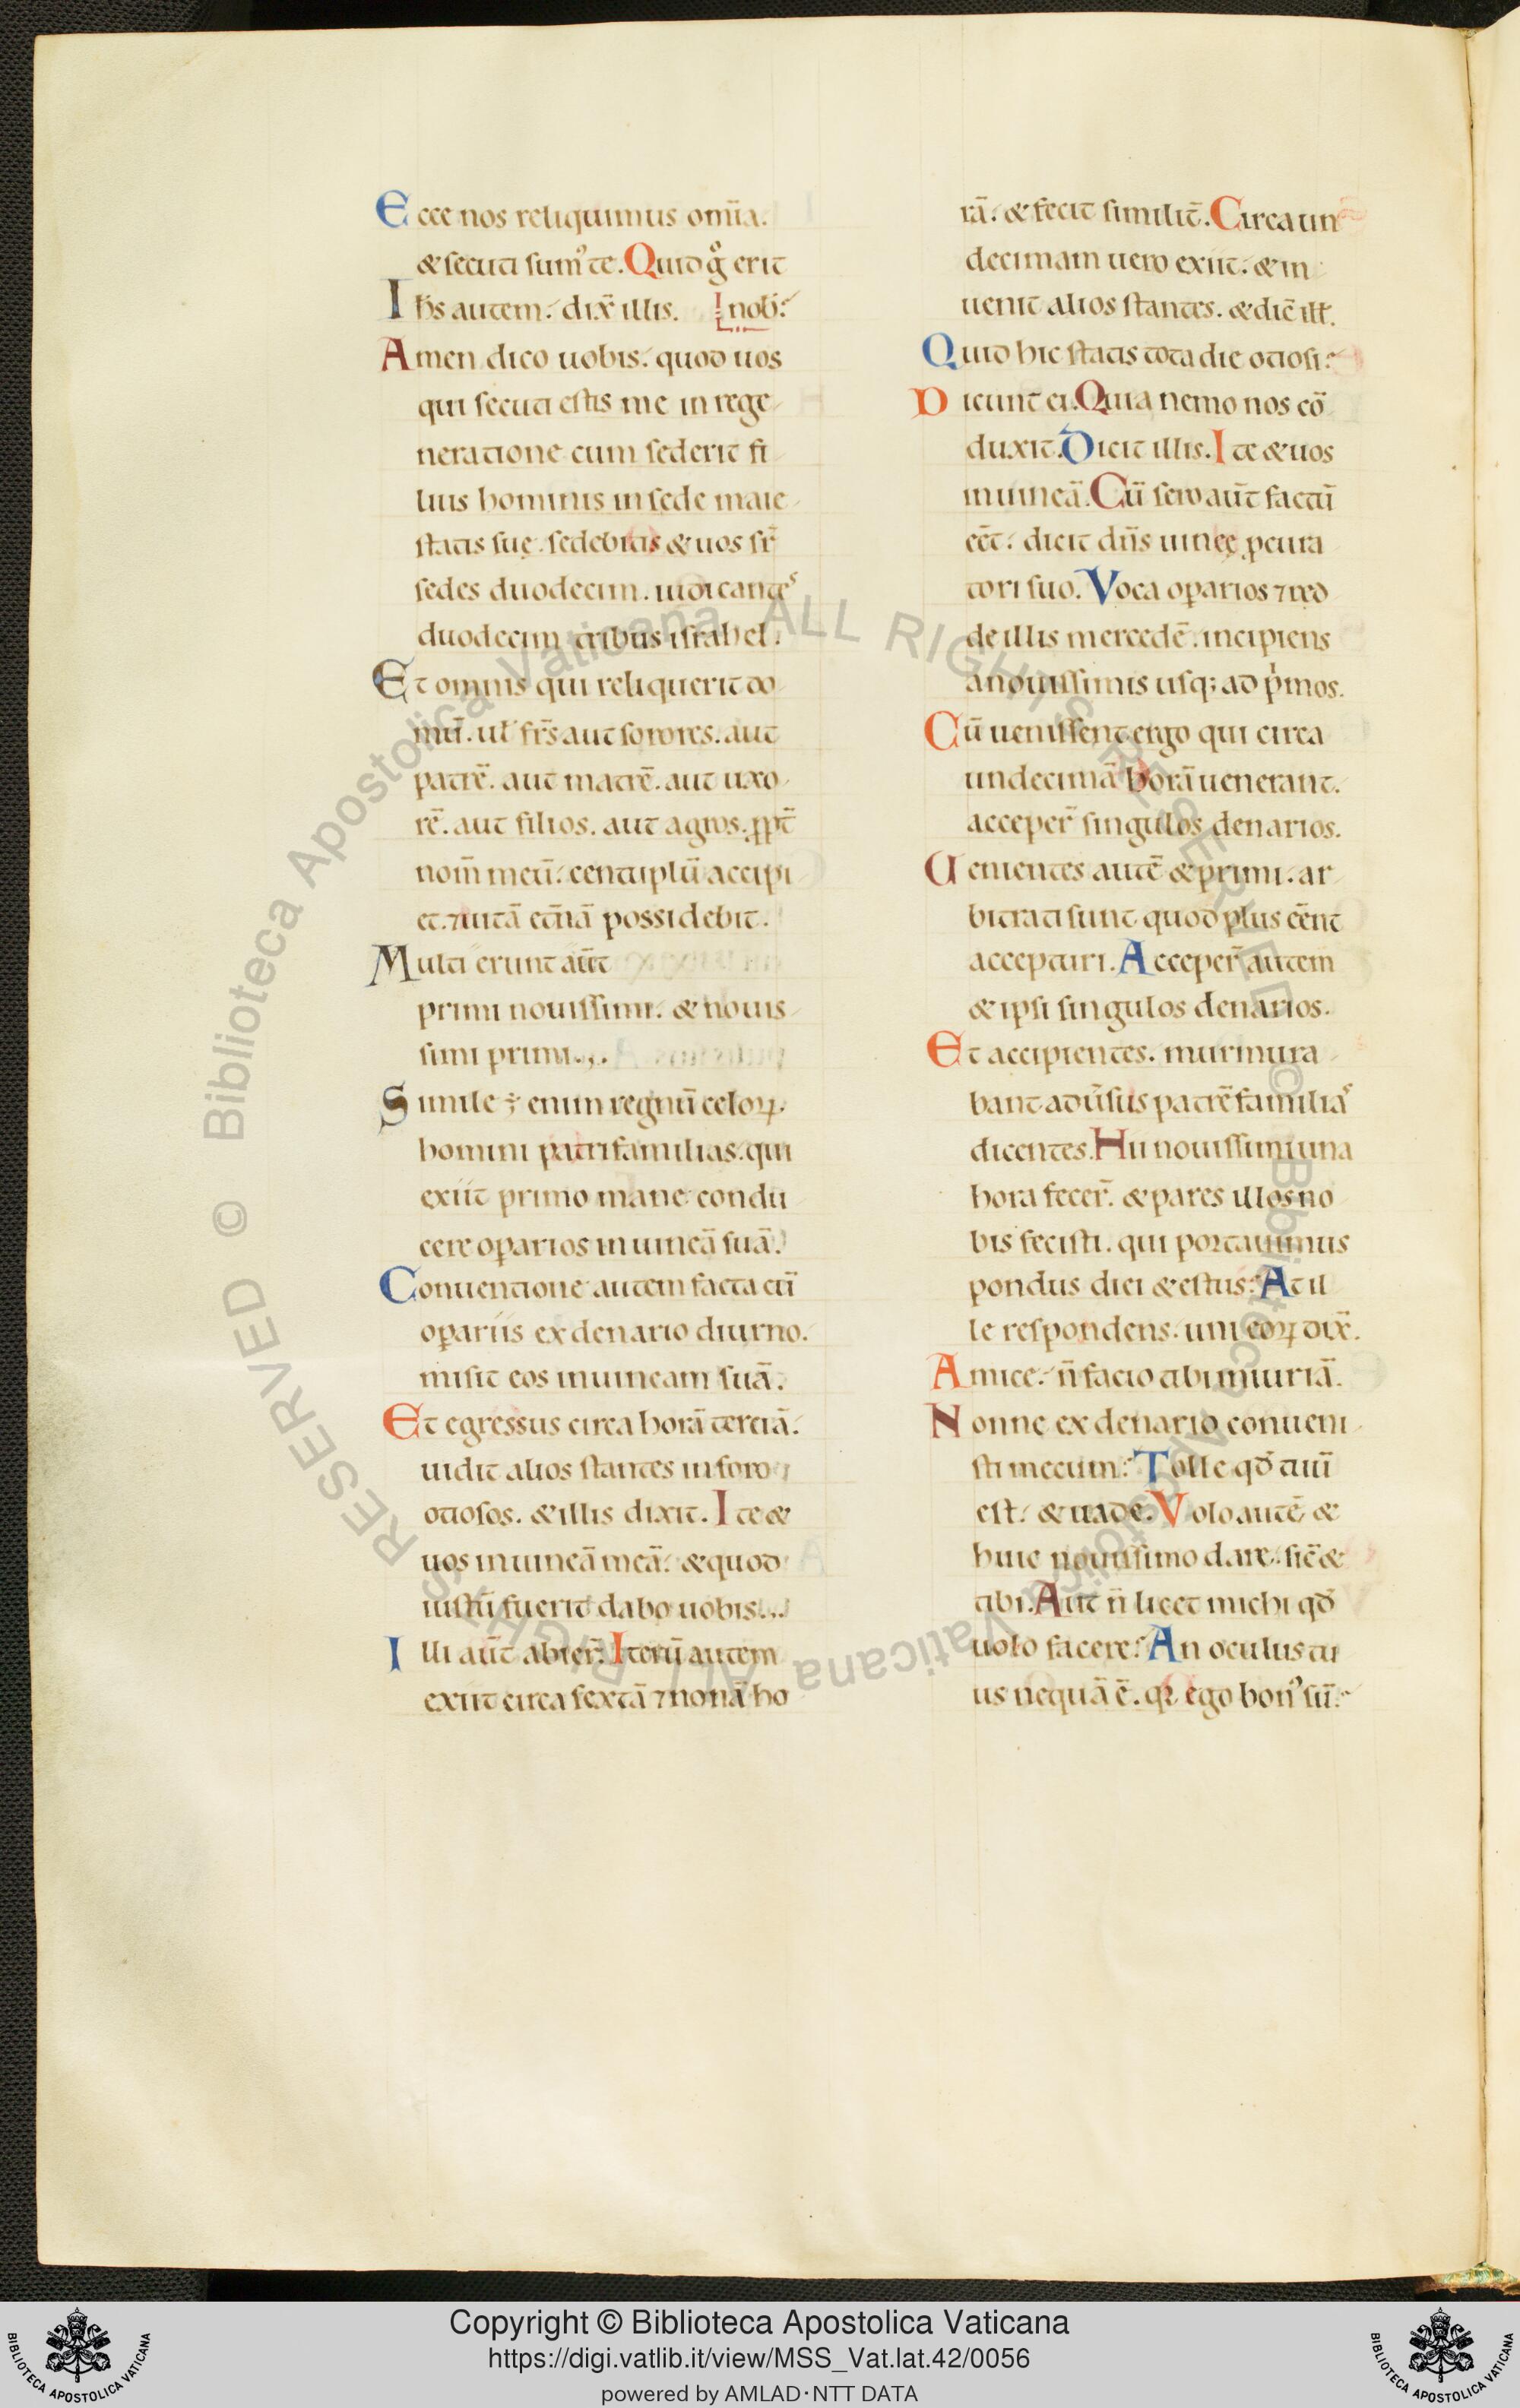 Ecce nos reliquimus om̄ia.
& secuti sumꝰ te. Quid gͦ erit
Ihs̄ autem. dix̄ illis. nob̄.
Amen dico uobis. quod uos
qui secuti estis me in rege
neratione cum sederit fi
lius hominis in sede maie
statis suę. sedebitis & uos sr̄
sedes duodecim. iudicantes
duodecim tribus israhel.
Et omnis qui reliquerit do
mū. ul̄ fr̄s aut sorores. aut
patrē. aut matrē. aut uxo
rē. aut filios. aut agros. ꝓpt̄
nom̄ meū. centuplū accipi
et. ⁊ uitā et̄nā possidebit.
Multi erunt aūt
primi nouissimi. & nouis
simi primi.,.
Simile ÷ enim regnū celoꝝ.
homini patrifamilias. qui
exiit primo mane condu
cere oꝑarios in uineā suā.
Conuentione autem facta cū
oꝑariis ex denario diurno.
misit eos in uineam suā.
Et egressus circa horā terciā.
uidit alios stantes in foro
otiosos. & illis dixit. Ite &
uos in uineā meā. & quod
iustū fuerit dabo uobis.,.
Illi aūt abier̄. Iterū autem
exiit circa sextā ⁊ nonā ho
rā. & fecit similit̄. Circa un
decimam uero exiit. & in
uenit alios stantes. & dic̄ ill̄.
Quid hic statis tota die otiosi.
Dicunt ei. Quia nemo nos cō
duxit. Dicit illis. Ite & uos
in uineā. Cū sero aūt factū
eēt. dicit dn̄s uineę ꝓcura
tori suo. Voca oꝑarios ⁊ red
de illis mercedē. incipiens
a nouissimis usq; ad pͥmos.
Cū uenissent ergo qui circa
undecimā horā uenerant.
acceper̄ singulos denarios.
Uenientes autē & primi. ar
bitrati sunt quod plus eēnt
accepturi. Acceper̄ autem
& ipsi singulos denarios.
Et accipientes. murmura
bant adūsus patrēfamilias
dicentes. Hii nouissimi una
hora fecer̄. & pares illos no
bis fecisti. qui portauimus
pondus diei & estus. At il
le respondens. uni eoꝝ dix̄.
Amice. n̄ facio tibi iniuriā.
Nonne ex denario conueni
sti mecum. Tolle qd̄ tuū
est. & uade. Volo autē &
huic nouissimo dare. sic̄ &
tibi. Aut n̄ licet michi qd̄
uolo facere. An oculus tu
us nequā ē. qꝛ ego bonꝰ sū.
RESERVED © Biblioteca Apostolica Vaticana ALL RIGHTS RESERVED © Biblioteca Apostolica Vaticana ALL RIGHTS
Copyright © Biblioteca Apostolica Vaticana
https://digi.vatlib.it/view/MSS_Vat.lat.42/0056
powered by AMLAD·NTT DATA
BIBLIOTECA APOSTOLICA VATICANA
BIBLIOTECA APOSTOLICA VATICANA